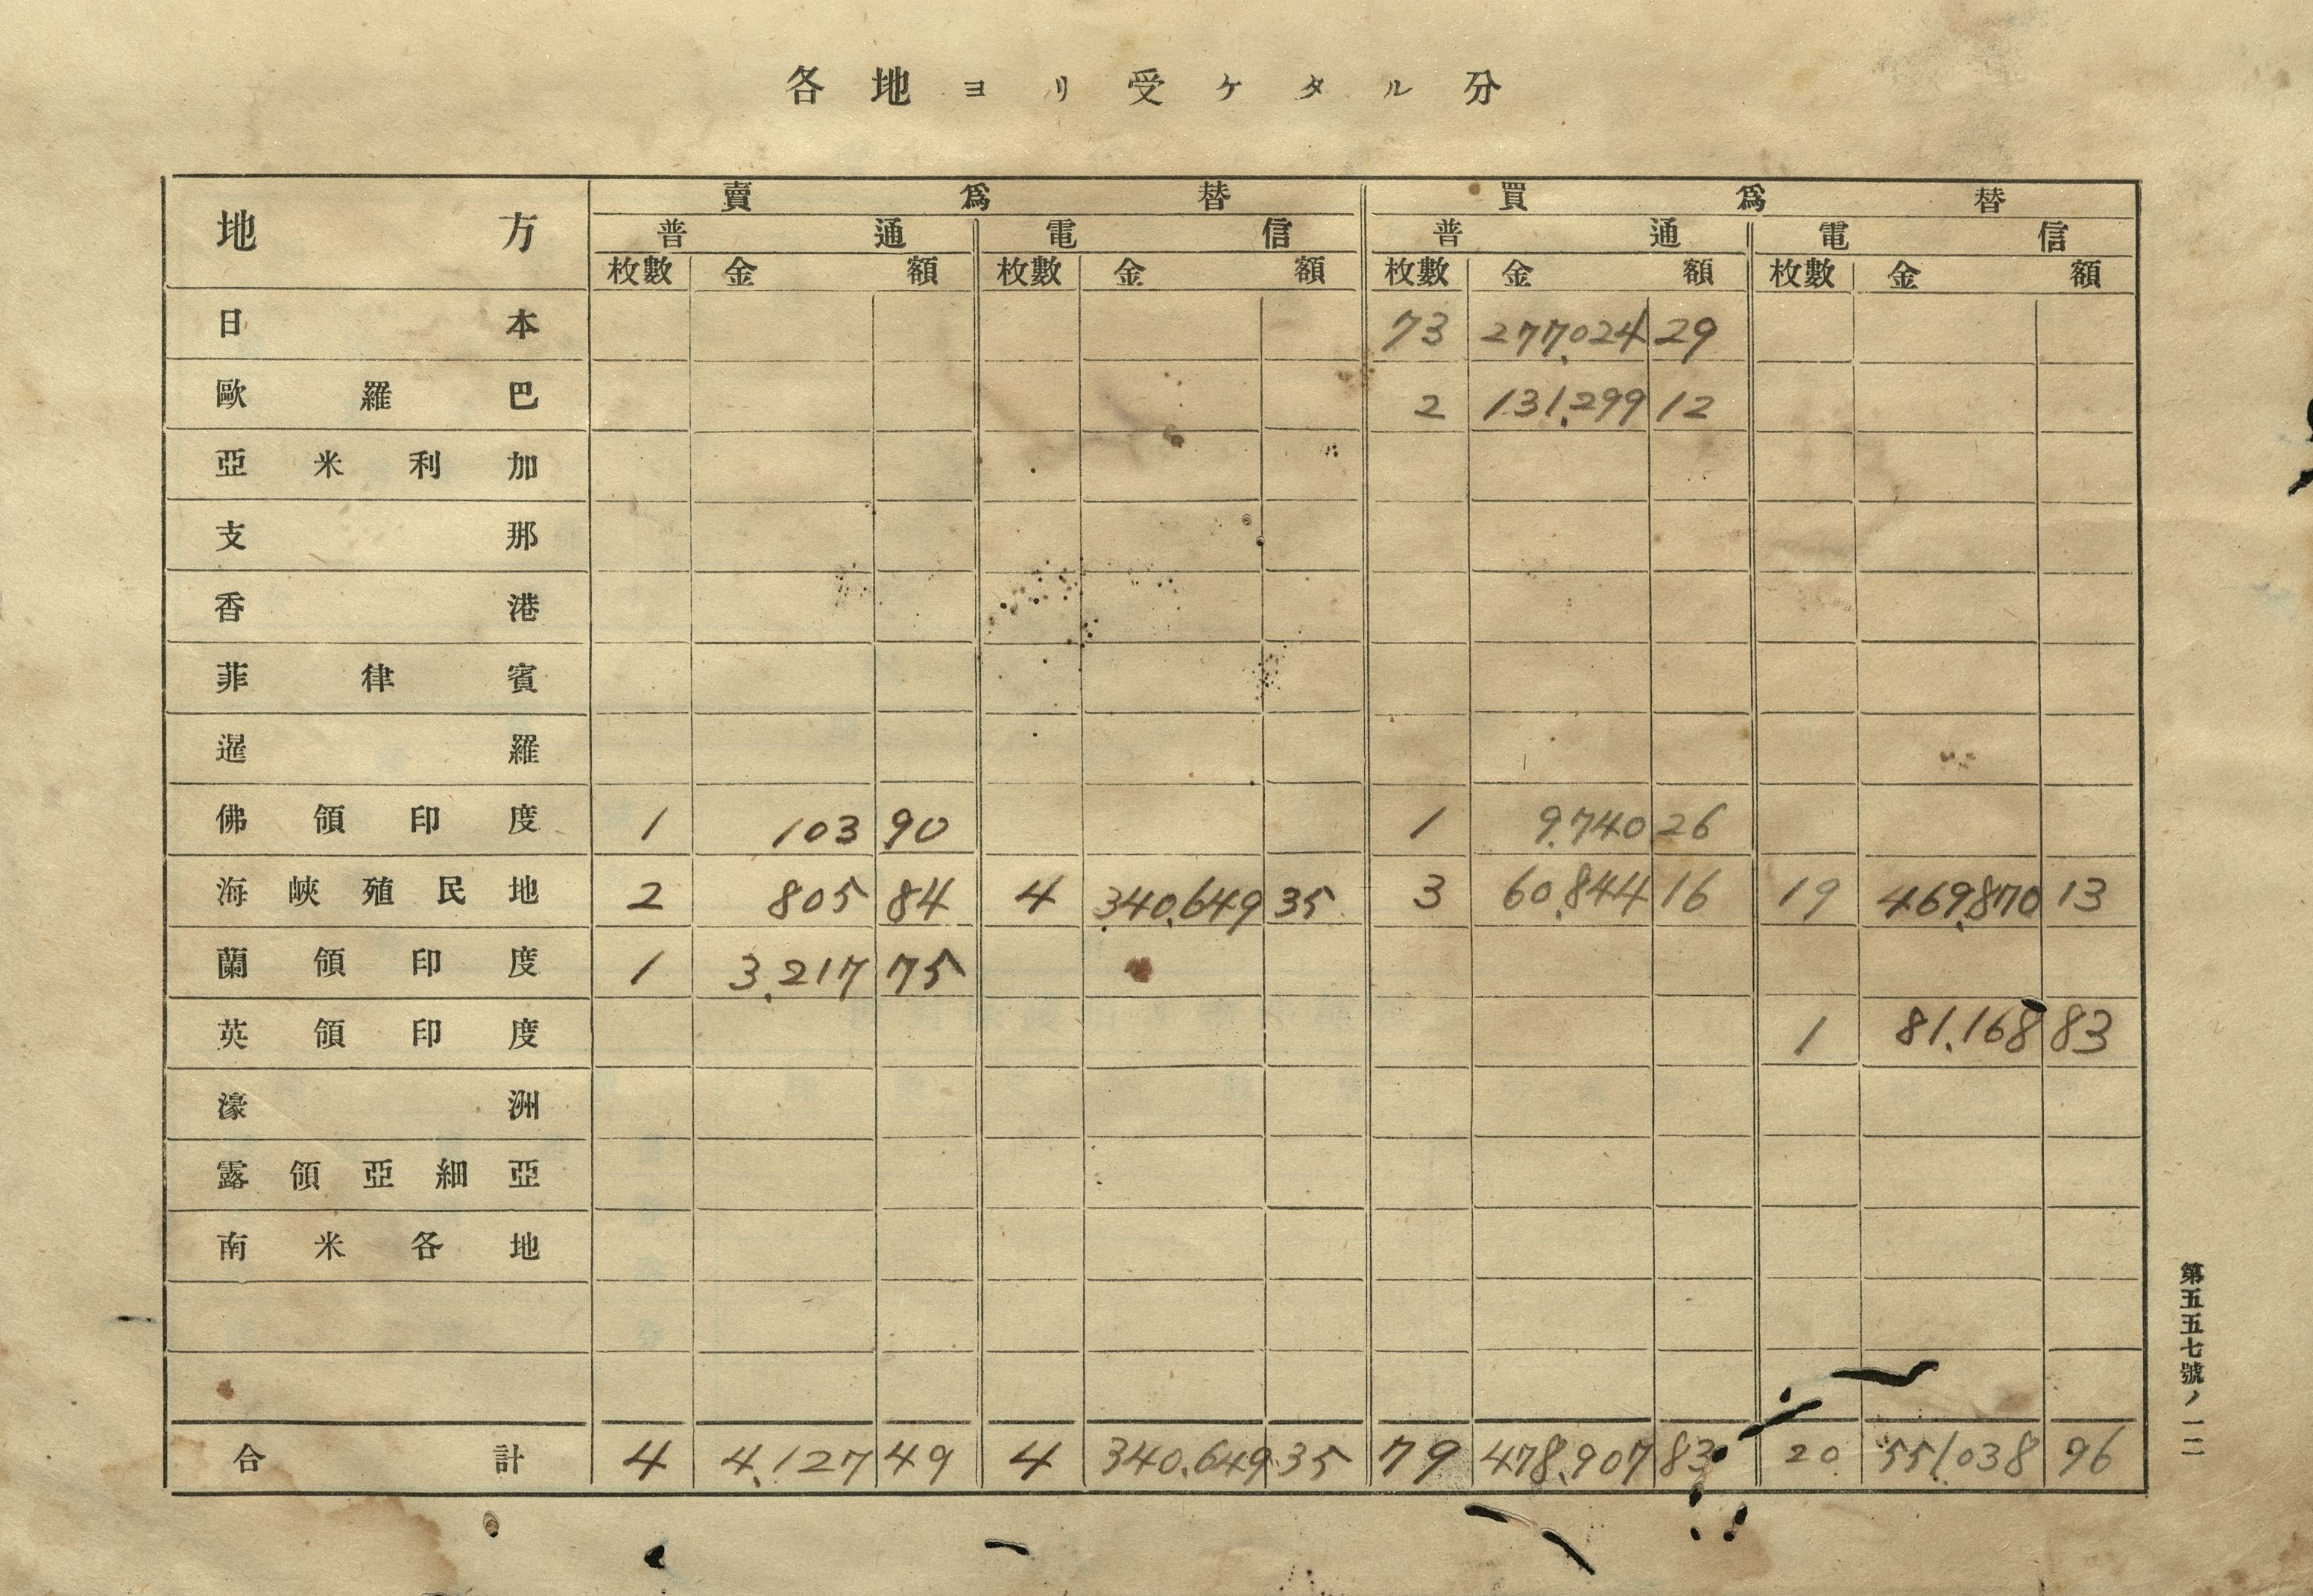 各地ヨリ受ケタル分
地方 賣爲替 買爲替
普通 電信 普通 電信
枚數 金額 枚數 金額 枚數 金額 枚數 金額
日本 73 277,024 29
歐羅巴 2 131,299 12
亞米利加
支那
香港
菲律賓
暹羅
佛領印度 1 103 90 1 9,740 26
海峽殖民地 2 805 84 4 340,649 35 3 60,844 16 19 469,870 13
蘭領印度 1 3,217 75
英領印度 1 81,168 83
濠洲
露領亞細亞
南米各地
合計 4 4,127 49 4 340,649 35 79 478,907 83 20 551,038 96
第五五七號ノ一二